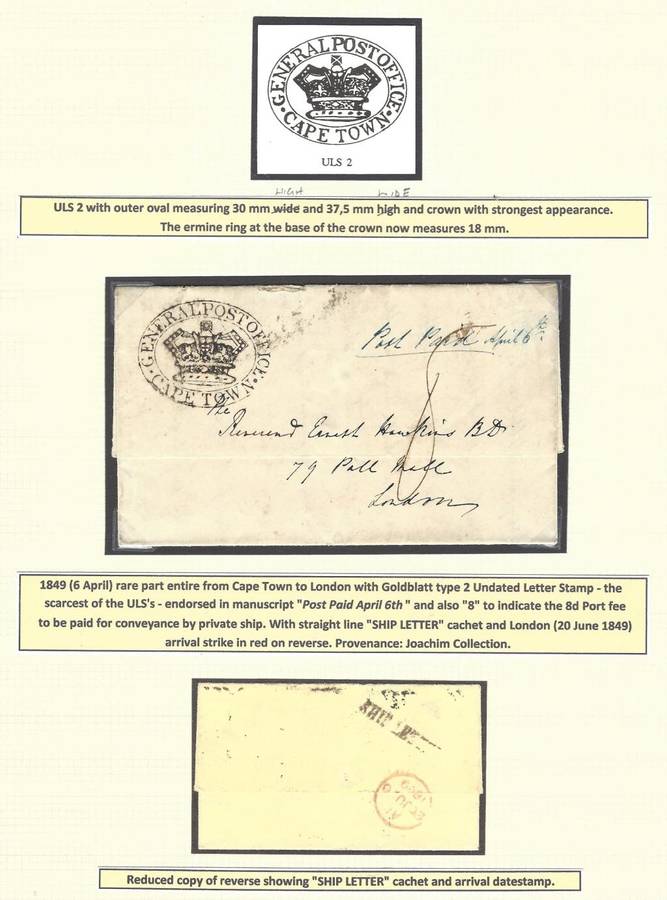 GENERAL POST OFFICE
CAPE TOWN
ULS 2
HIGH WIDE
ULS 2 with outer oval measuring 30 mm wide and 37,5 mm high and crown with strongest appearance.
The ermine ring at the base of the crown now measures 18 mm.
GENERAL POST OFFICE
CAPE TOWN
Post Paid April 6th
8
The
Reverend Ernest Hawkins B.D.
79 Pall Mall
London
1849 (6 April) rare part entire from Cape Town to London with Goldblatt type 2 Undated Letter Stamp - the
scarcest of the ULS's - endorsed in manuscript "Post Paid April 6th" and also "8" to indicate the 8d Port fee
to be paid for conveyance by private ship. With straight line "SHIP LETTER" cachet and London (20 June 1849)
arrival strike in red on reverse. Provenance: Joachim Collection.
SHIP LE
Reduced copy of reverse showing "SHIP LETTER" cachet and arrival datestamp.